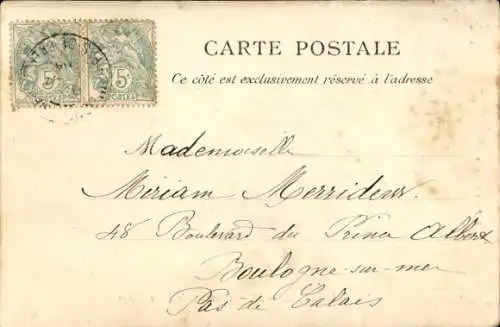 CARTE POSTALE
Ce côté est exclusivement réservé à l'adresse
5
5
Mademoiselle
Miriam Merrideur.
48 Boulevard du Prince Albert
Boulogne-sur-mer
Pas de Calais